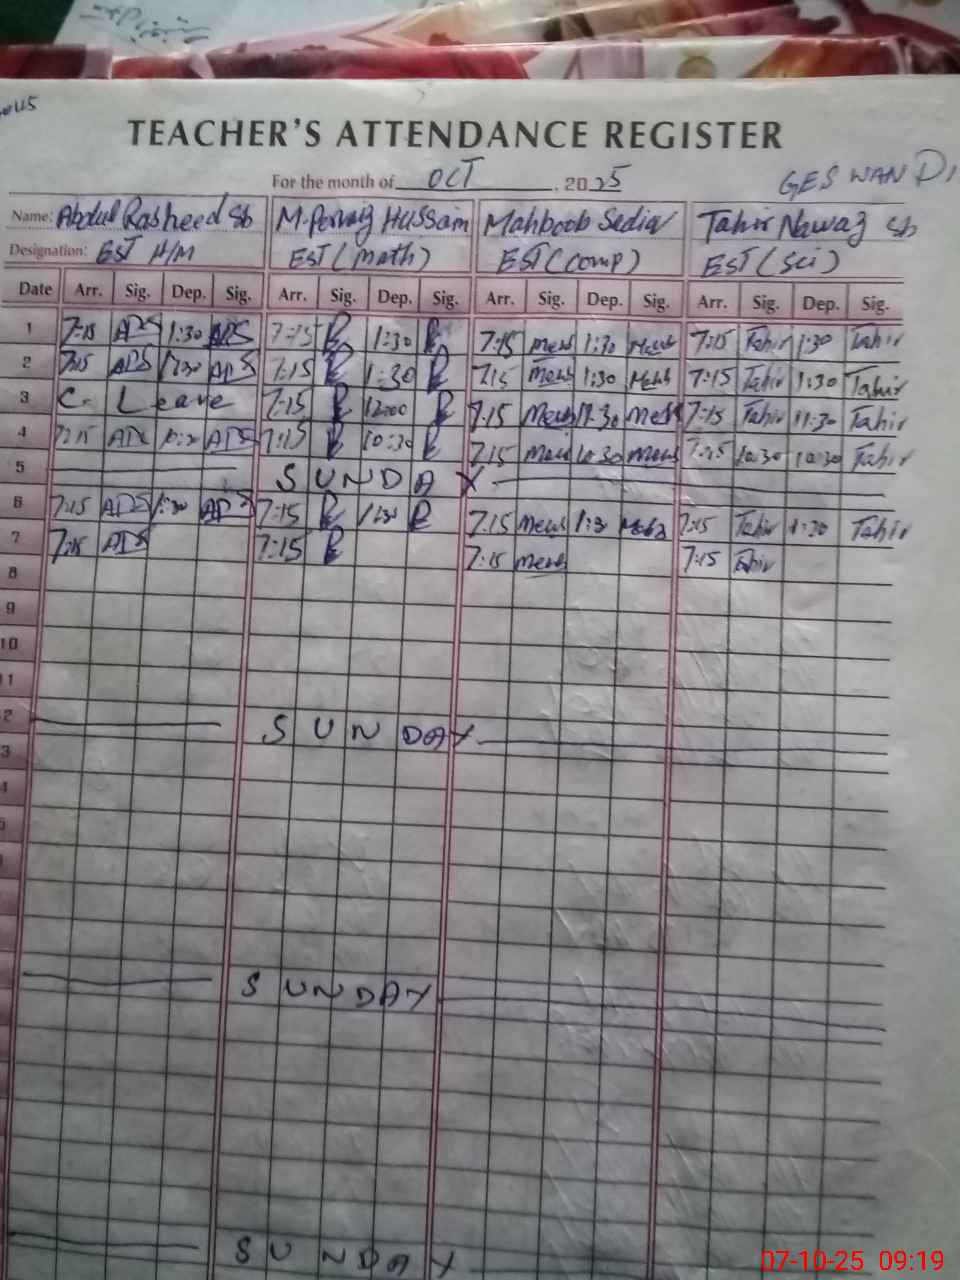 TEACHER'S ATTENDANCE REGISTER
For the month of OCT, 2025
GES WAN DI
Name: Abdul Rasheed Sb M. Pervaiz Hussain Mahboob Sediq Tahir Nawaz Sb
Designation: EST H/M EST (Math) EST (Comp) EST (Sci)
Date Arr. Sig. Dep. Sig. Arr. Sig. Dep. Sig. Arr. Sig. Dep. Sig. Arr. Sig. Dep. Sig.
1 7:15 ADS 1:30 ADS 7:15 1:30 7:15 Meus 1:30 Meus 7:15 Tahir 1:30 Tahir
2 7:15 ADS 1:30 ADS 7:15 1:30 7:15 Meus 1:30 Meus 7:15 Tahir 1:30 Tahir
3 C. Leave 7:15 12:00 7:15 Meus 11:30 Meus 7:15 Tahir 11:30 Tahir
4 7:15 ADS ADS 7:15 10:30 7:15 Meus 10:30 Meus 7:15 10:30 10:30 Tahir
5 SUNDAY
6 7:15 ADS 1:30 ADS 7:15 1:30 7:15 Meus 1:3 7:15 Tahir 1:30 Tahir
7 7:15 ADS 7:15 7:15 Meus 7:15 Tahir
8
9
10
11
2 SUNDAY
3
4
SUNDAY
SUNDAY
07-10-25 09:19